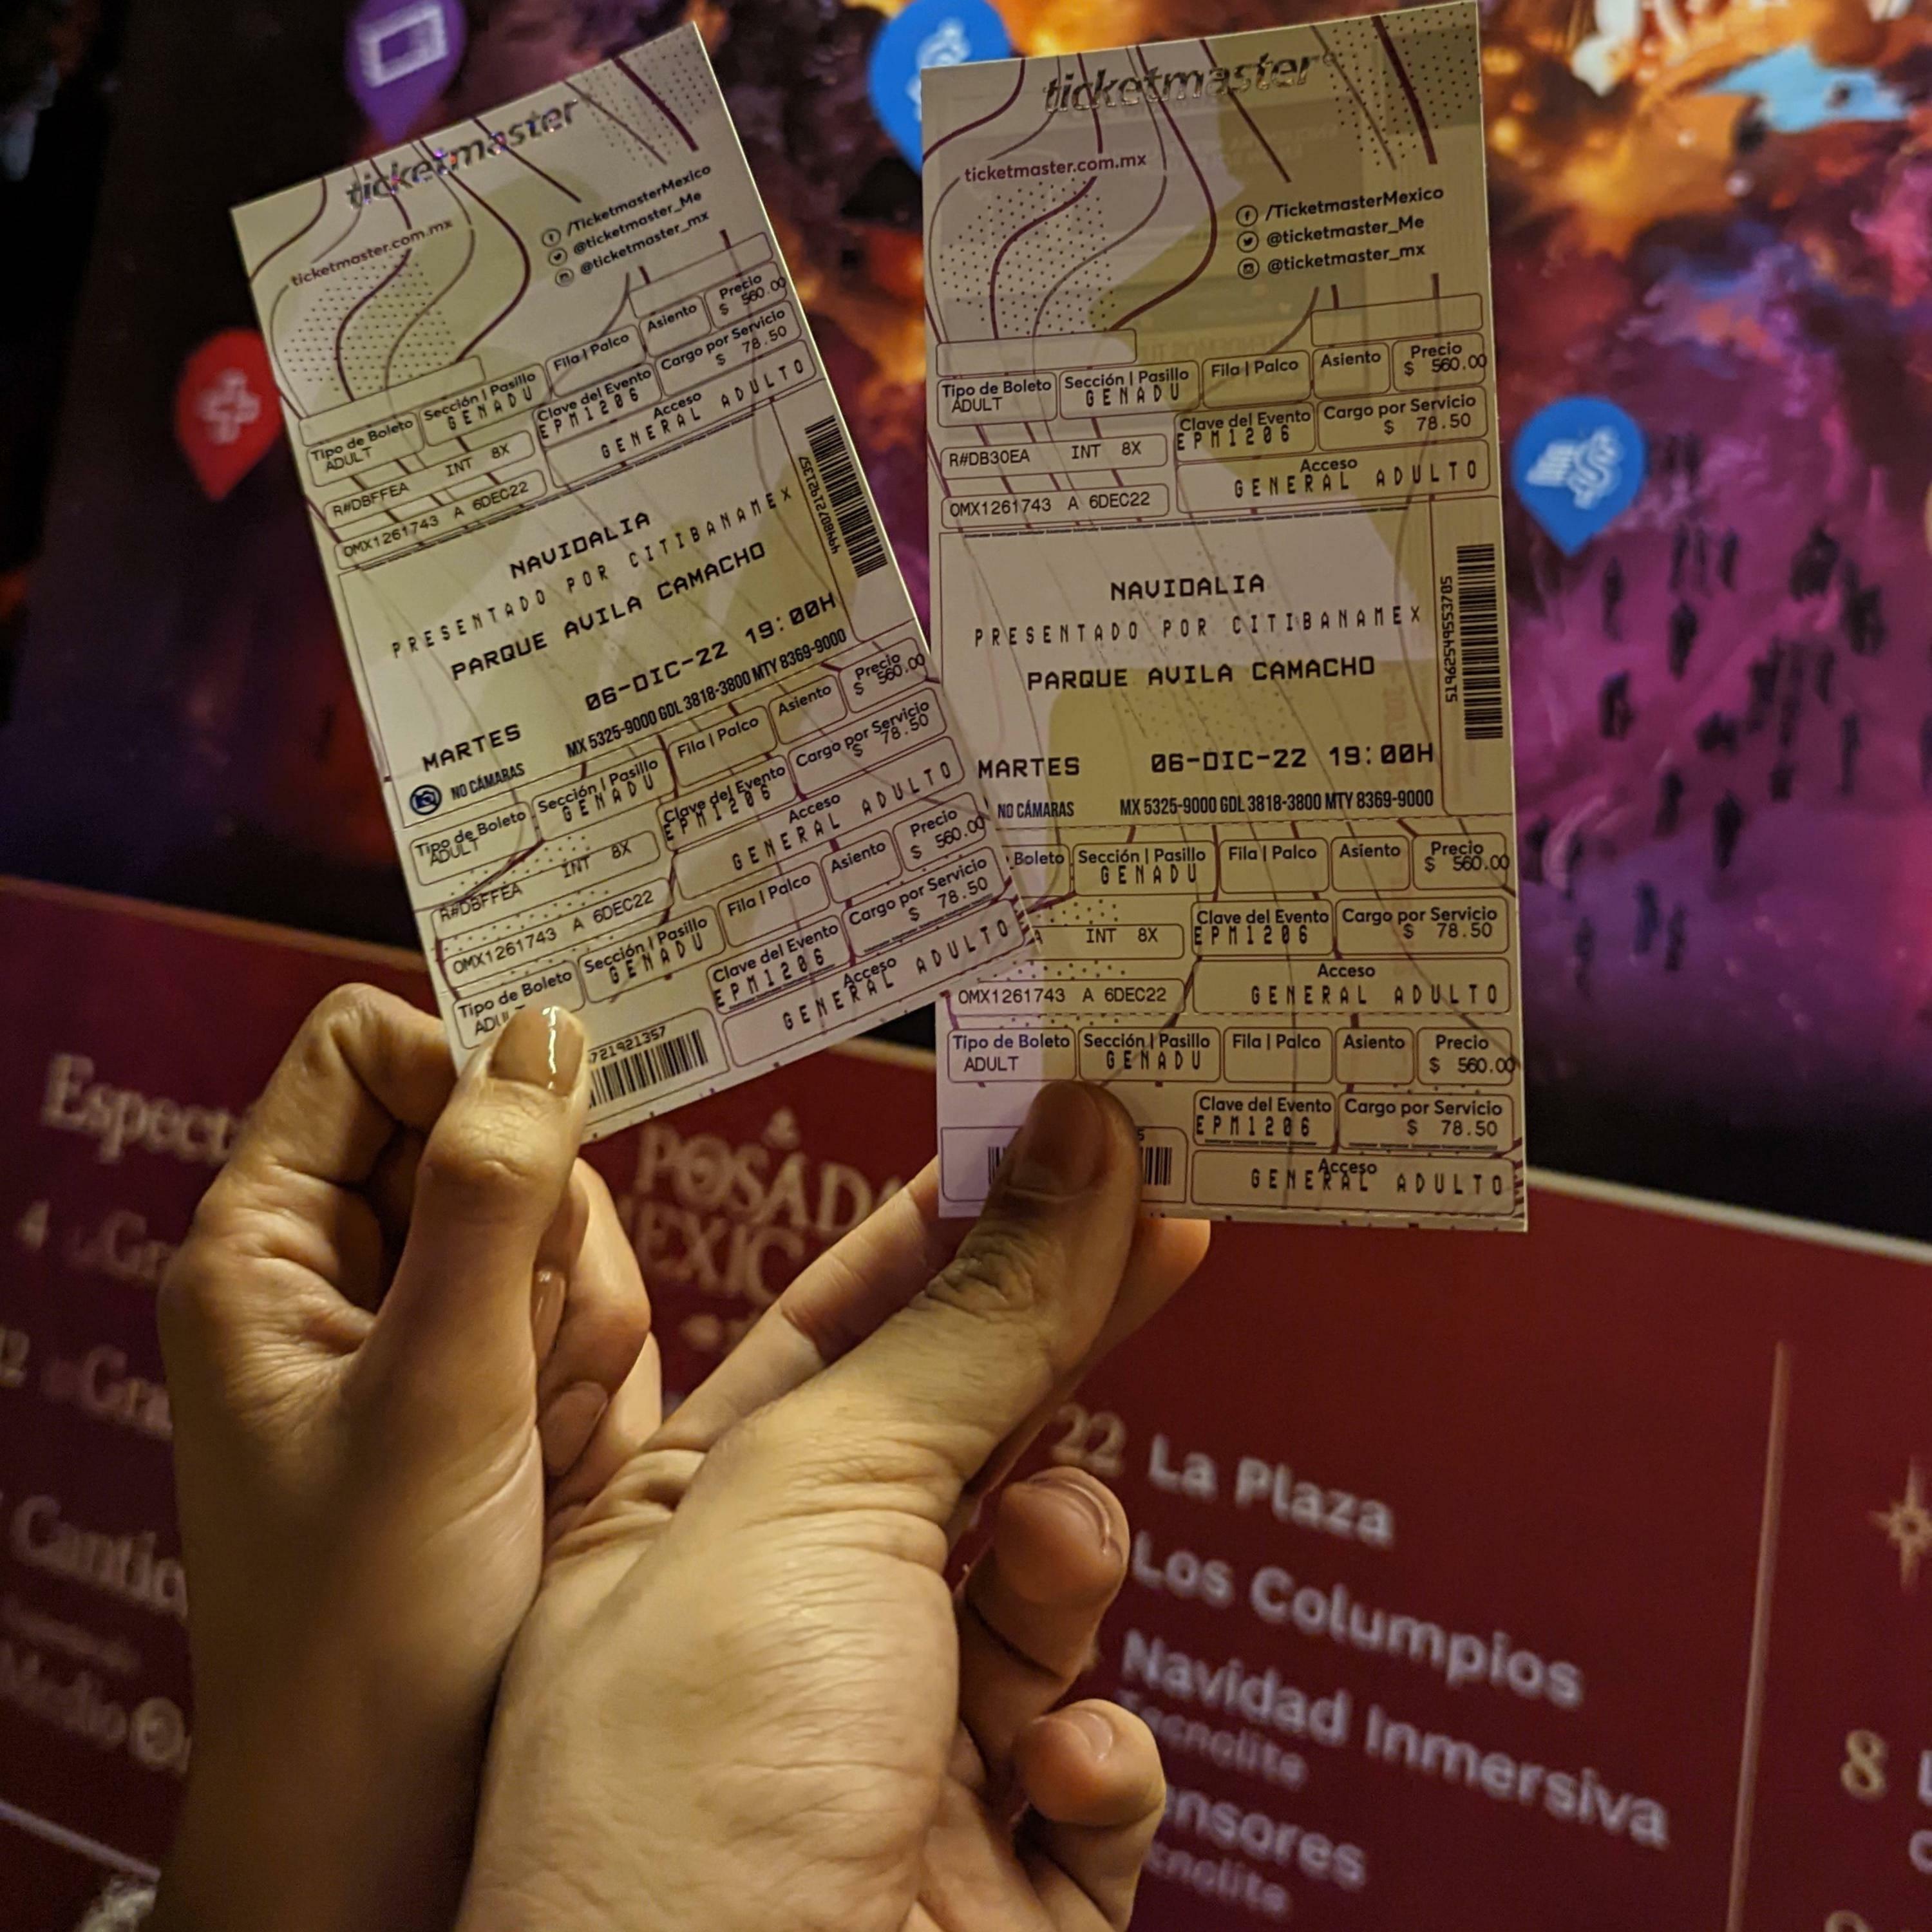 ticketmaster
ticketmaster.com.mx
/TicketmasterMexico
@ticketmaster_Me
@ticketmaster_mx
Tipo de Boleto Sección | Pasillo Fila | Palco Asiento Precio
ADULT GENADU $ 560.00
Clave del Evento Cargo por Servicio
R#DBFFEA INT 8X EPM1206 $ 78.50
Acceso
OMX1261743 A 6DEC22 GENERAL ADULTO
NAVIDALIA
PRESENTADO POR CITIBANAMEX
PARQUE AVILA CAMACHO
MARTES 06-DIC-22 19:00H
NO CÁMARAS MX 5325-9000 GDL 3818-3800 MTY 8369-9000
Tipo de Boleto Sección | Pasillo Fila | Palco Asiento Precio
ADULT GENADU $ 560.00
Clave del Evento Cargo por Servicio
R#DBFFEA INT 8X EPM1206 $ 78.50
Acceso
OMX1261743 A 6DEC22 GENERAL ADULTO
Tipo de Boleto Sección | Pasillo Fila | Palco Asiento Precio
GENADU $ 560.00
Clave del Evento Cargo por Servicio
EPM1206 $ 78.50
Acceso
GENERAL ADULTO
721921357
ticketmaster
ticketmaster.com.mx
/TicketmasterMexico
@ticketmaster_Me
@ticketmaster_mx
Tipo de Boleto Sección | Pasillo Fila | Palco Asiento Precio
ADULT GENADU $ 560.00
Clave del Evento Cargo por Servicio
R#DB30EA INT 8X EPM1206 $ 78.50
Acceso
OMX1261743 A 6DEC22 GENERAL ADULTO
NAVIDALIA
PRESENTADO POR CITIBANAMEX
PARQUE AVILA CAMACHO
MARTES 06-DIC-22 19:00H
NO CÁMARAS MX 5325-9000 GDL 3818-3800 MTY 8369-9000
51962549553705
Boleto Sección | Pasillo Fila | Palco Asiento Precio
GENADU $ 560.00
Clave del Evento Cargo por Servicio
INT 8X EPM1206 $ 78.50
Acceso
OMX1261743 A 6DEC22 GENERAL ADULTO
Tipo de Boleto Sección | Pasillo Fila | Palco Asiento Precio
ADULT GENADU $ 560.00
Clave del Evento Cargo por Servicio
EPM1206 $ 78.50
Acceso
GENERAL ADULTO
POSADA
22 La Plaza
Los Columpios
Navidad Inmersiva
8